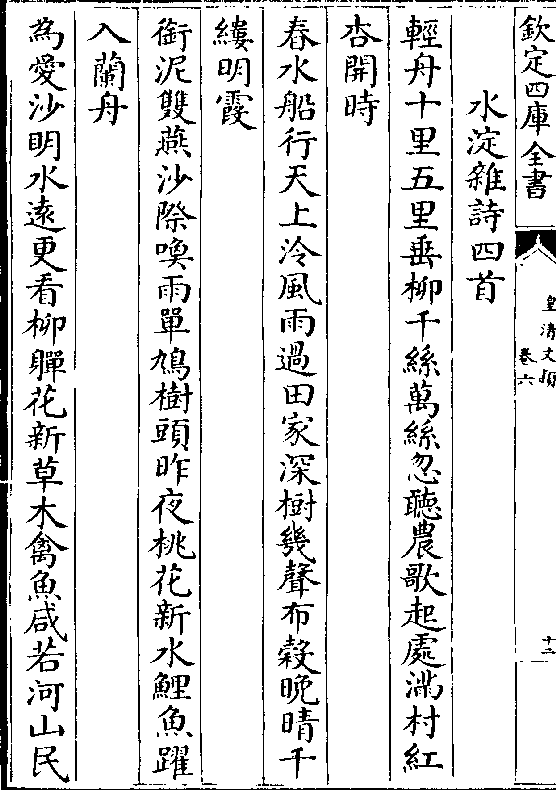 欽定四庫全書
皇清文頴
卷六
十二
水淀雜詩四首
輕舟十里五里垂柳千絲萬絲忽聽農歌起處滿村紅
杏開時
春水船行天上泠風雨過田家深樹幾聲布穀晚晴千
縷明霞
銜泥雙燕沙際喚雨單鳩樹頭昨夜桃花新水鯉魚躍
入蘭舟
為愛沙明水遠更看柳嚲花新草木禽魚咸若河山民